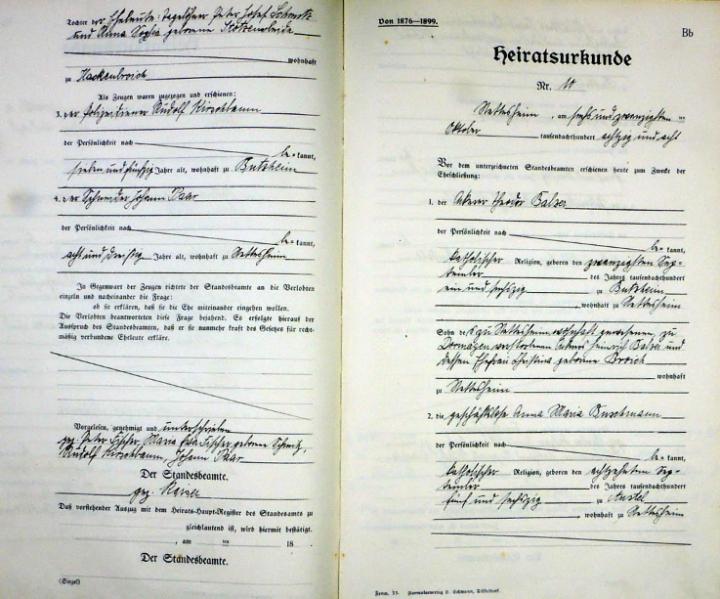 Tochter der Eheleute Tagelöhner Peter Josef Schmitz
und Anna Sophia geborene
wohnhaft
zu Hackenbroich
Als Zeugen waren zugezogen und erschienen:
3. der Polizeidiener Rudolf Kirschbaum
der Persönlichkeit nach
be= kannt,
sieben und fünfzig Jahre alt, wohnhaft zu Butzheim
4. der Schneider Johann Paar
der Persönlichkeit nach
be= kannt,
acht und dreißig Jahre alt, wohnhaft zu Nettesheim
In Gegenwart der Zeugen richtete der Standesbeamte an die Verlobten
einzeln und nacheinander die Frage:
ob sie erklären, daß sie die Ehe miteinander eingehen wollen.
Die Verlobten beantworteten diese Frage bejahend. Es erfolgte hierauf der
Ausspruch des Standesbeamten, daß er sie nunmehr kraft des Gesetzes für recht-
mäßig verbundene Eheleute erkläre.
Vorgelesen, genehmigt und unterschrieben
gz. Peter Fischer, Maria Fischer geborene Schmitz,
Rudolf Kirschbaum, Johann Paar
Der Standesbeamte.
gez.
Daß vorstehender Auszug mit dem Heirats-Haupt-Register des Standesamts zu
gleichlautend ist, wird hiermit bestätigt.
, am ten 18
Der Standesbeamte.
(Siegel)
Von 1876—1899.
Bb
Heiratsurkunde
Nr. 10
Nettesheim, am sechs und zwanzigsten
Oktober tausendachthundert achtzig und acht
Vor dem unterzeichneten Standesbeamten erschienen heute zum Zwecke der
Eheschließung:
1. der Ackerer Theodor Balzer
der Persönlichkeit nach
be= kannt,
katholischer Religion, geboren den zwanzigsten Sep-
tember des Jahres tausendachthundert
ein und sechzig zu Butzheim
, wohnhaft zu Nettesheim
Sohn des zu Nettesheim wohnhaft gewesenen, zu
Dormagen verstorbenen Ackerers Heinrich Balzer und
dessen Ehefrau Christina geborene Broich
wohnhaft
zu Nettesheim
2. die geschäftslose Anna Maria Buschmann
der Persönlichkeit nach
be= kannt,
katholischer Religion, geboren den achtzehnten Sep-
tember des Jahres tausendachthundert
fünf und sechzig zu Anstel
, wohnhaft zu Nettesheim
Form. 33. Formularverlag L. Schwann, Düsseldorf.